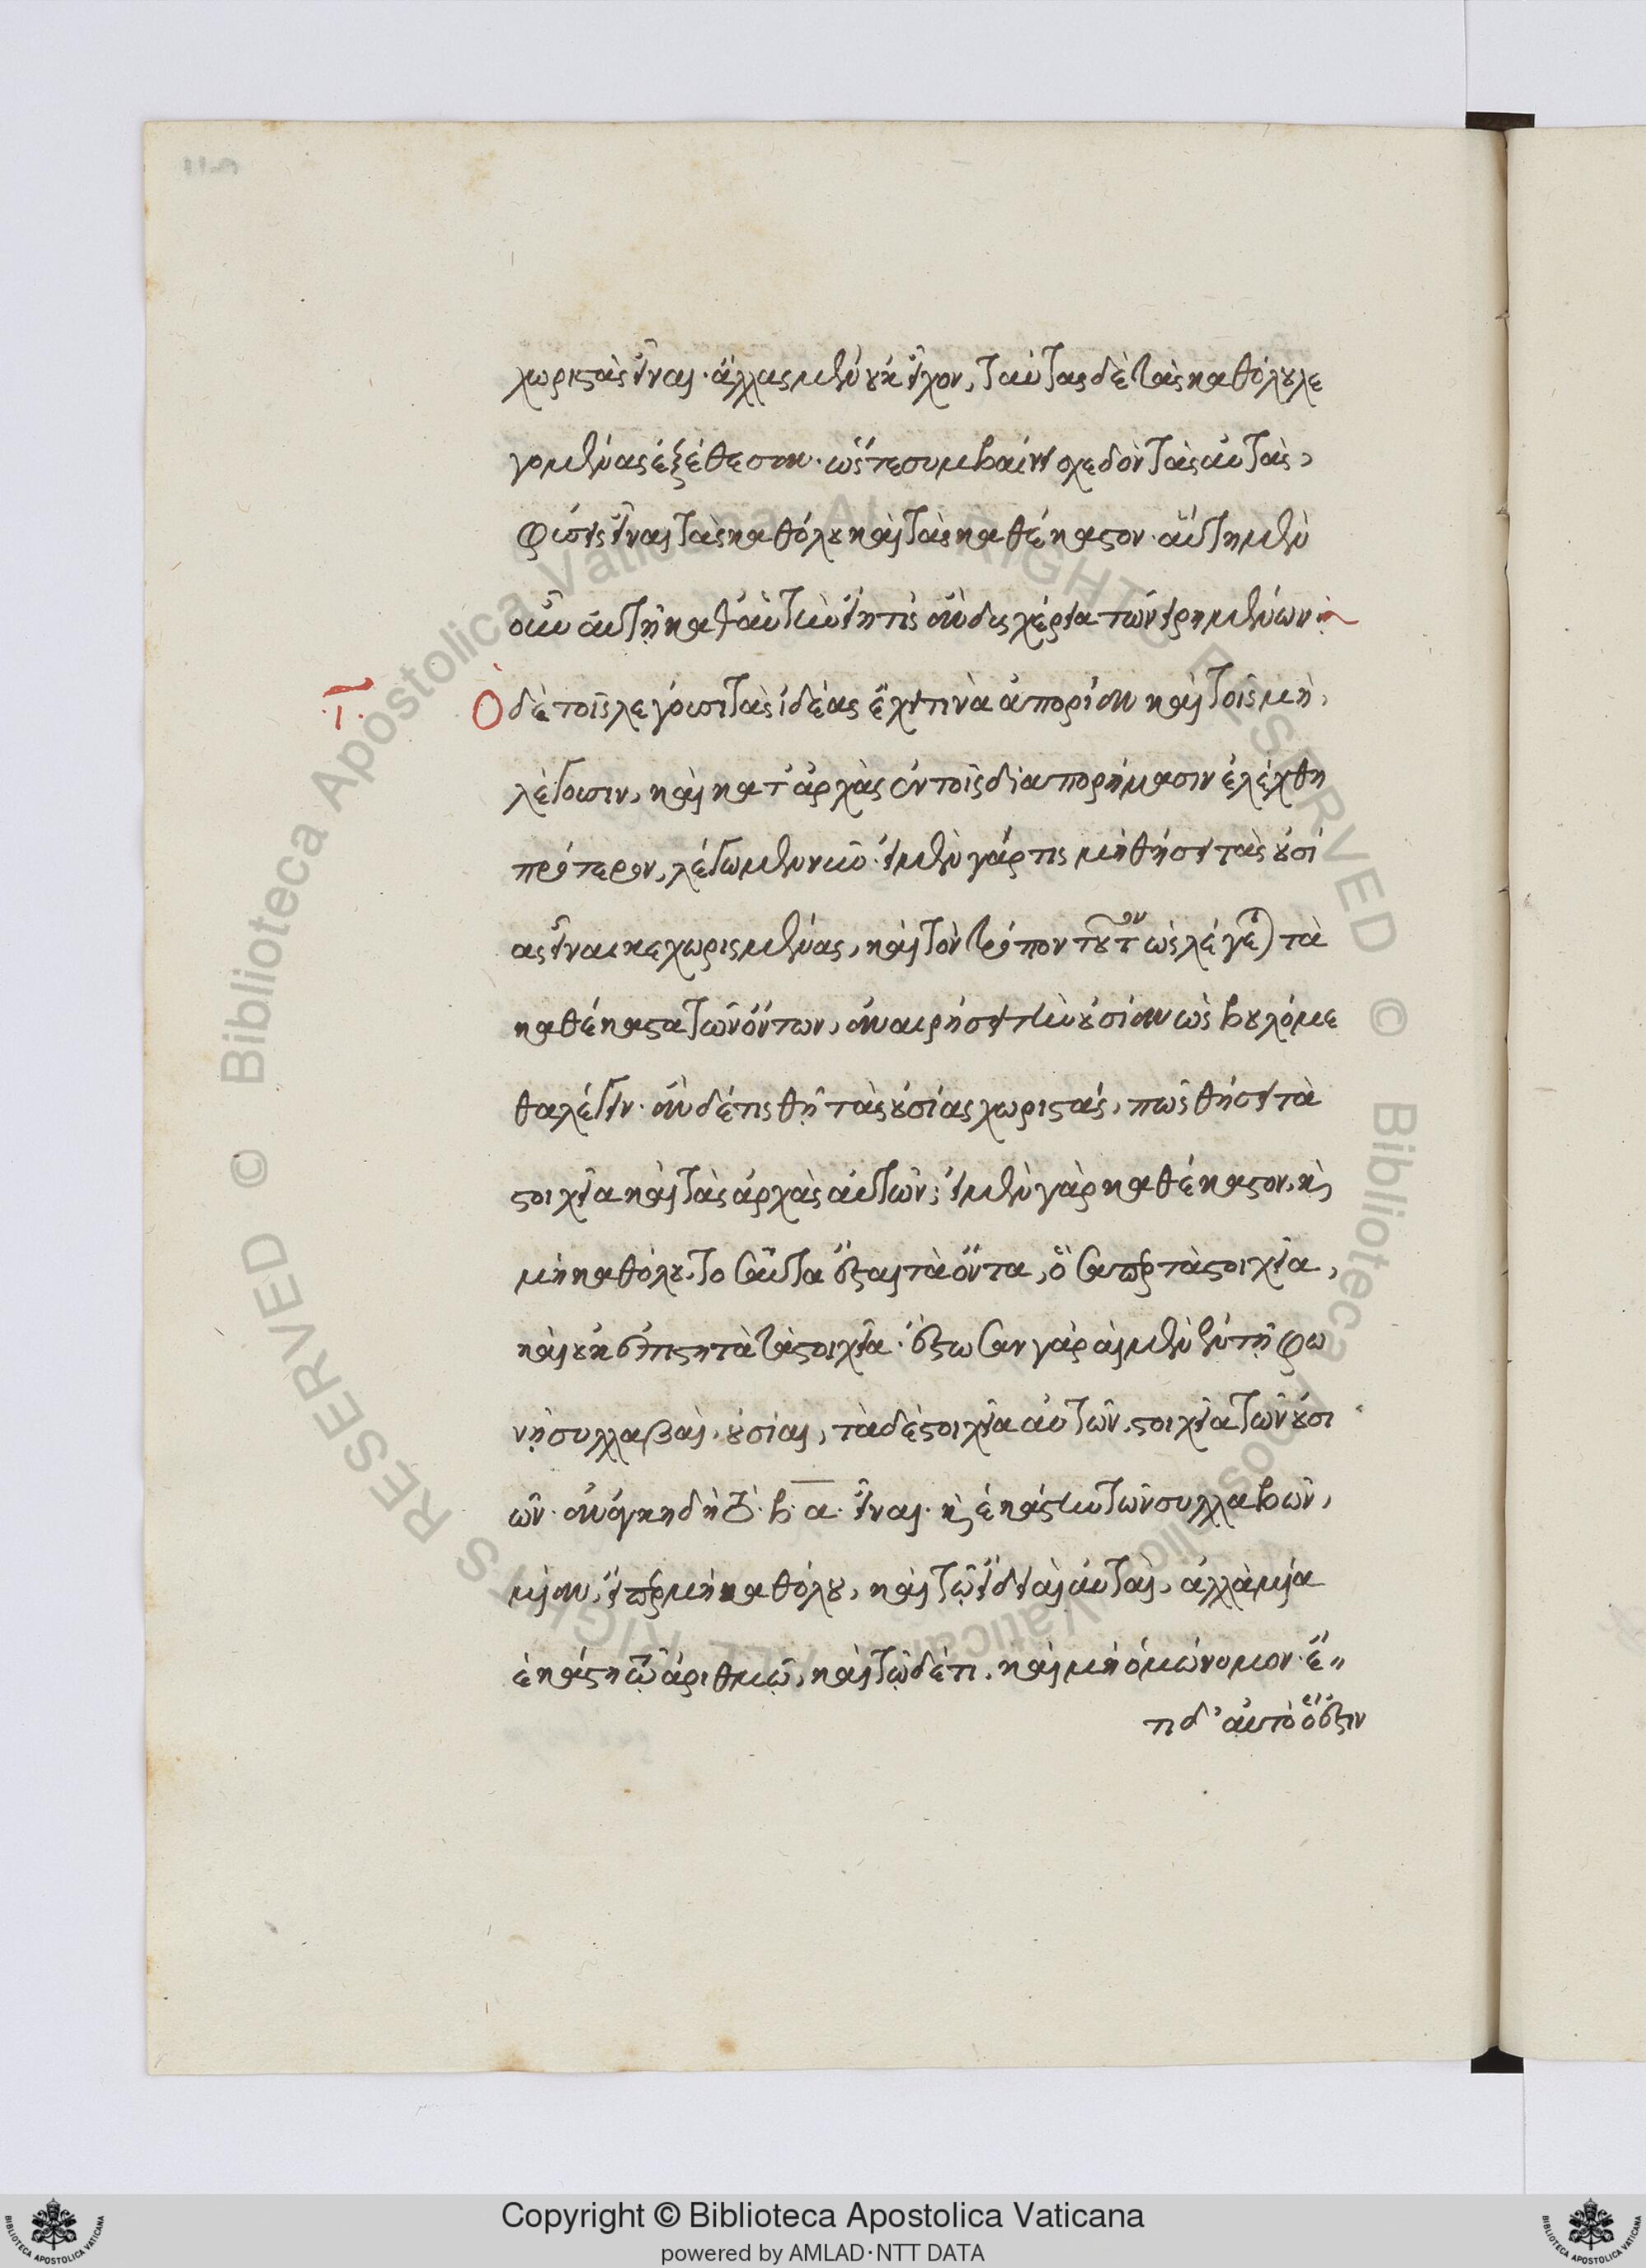 χωριστὰς εἶναι· ἄλλας μὲν οὐκ εἶχον, ταύτας δὲ τὰς καθόλου λε
γομένας ἐξέθεσαν· ὥστε συμβαίνει σχεδὸν τὰς αὐτὰς,
φύσεις εἶναι τὰς καθόλου καὶ τὰς καθέκαστον· αὕτη μὲν
οὖν αὐτὴ καθ' αὑτὴν εἴη τις ἂν δυσχέρεια τῶν εἰρημένων·
Γ
Ὁ δὲ τοῖς λέγουσι τὰς ἰδέας ἔχει τινὰ ἀπορίαν καὶ τοῖς μὴ,
λέγουσιν, καὶ κατ' ἀρχὰς ἐν τοῖς διαπορήμασιν ἐλέχθη
πρότερον, λέγωμεν νῦν· εἰ μὲν γάρ τις μὴ θήσει τὰς οὐσί
ας εἶναι κεχωρισμένας, καὶ τὸν τρόπον τοῦτον ὡς λέγεται τὰ
καθέκαστα τῶν ὄντων, ἀναιρήσει τὴν οὐσίαν ὡς βουλόμε
θα λέγειν· ἂν δέ τις θῇ τὰς οὐσίας χωριστάς, πῶς θήσει τὰ
στοιχεῖα καὶ τὰς ἀρχὰς αὐτῶν; εἰ μὲν γὰρ καθέκαστον, καὶ
μὴ καθόλου, τοσαῦτα ἔσται τὰ ὄντα, ὅσαπερ τὰ στοιχεῖα,
καὶ οὐκ ἐπιστητὰ τὰ στοιχεῖα· ἔστωσαν γὰρ αἱ μὲν ἐν τῇ φω
νῇ συλλαβαὶ, οὐσίαι, τὰ δὲ στοιχεῖα αὐτῶν, στοιχεῖα τῶν οὐσι
ῶν· ἀνάγκη δὴ τὸ· β· α· εἶναι· καὶ ἑκάστην τῶν συλλαβῶν,
μίαν, εἴπερ μὴ καθόλου, καὶ τῷ εἴδει αἱ αὐταὶ, ἀλλὰ μία
ἑκάστη τῷ ἀριθμῷ, καὶ τόδε τι, καὶ μὴ ὁμώνυμον· ἔ
τι δ' αὐτὸ ὃ ἔστιν
Copyright © Biblioteca Apostolica Vaticana
powered by AMLAD·NTT DATA